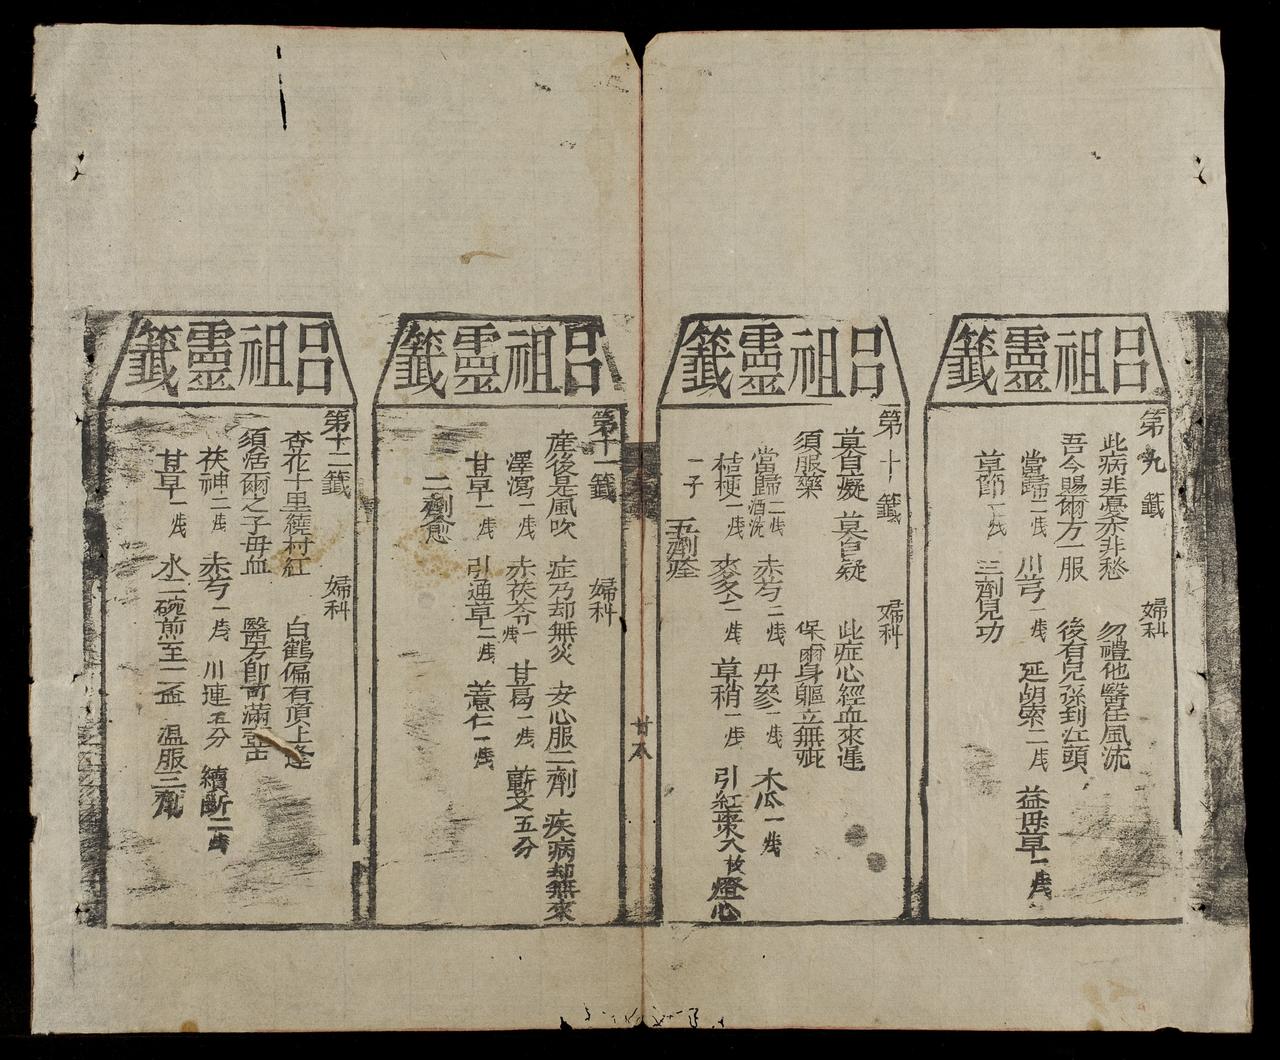 呂祖靈籤
第九籤 婦科
此病非憂亦非愁 勿禮他醫任風流
吾今賜爾方一服 後有兒孫到江頭
當歸二錢 川芎一錢 延胡索二錢 益母草一錢
草節一錢 三劑見功
呂祖靈籤
第十籤 婦科
莫自癡 莫自疑 此症心經血來遲
須服藥 保爾身軀立無疵
當歸二錢酒洗 赤芍二錢 丹參一錢 木瓜一錢
桔梗一錢 麥冬二錢 草稍一錢 引紅棗八枚 燈心
一子
五劑痊
廿八
呂祖靈籤
第十一籤 婦科
產後是風吹 症乃却無炎 安心服二劑 疾病却無來
澤瀉一錢 赤茯苓一錢 甘葛一錢 蘄艾五分
甘草一錢 引通草二錢 薏仁一錢
二劑愈
呂祖靈籤
第十二籤 婦科
杏花十里繞村紅 白鶴偏有頂上逢
須活爾之子母血 醫方即可滿壺
茯神二錢 赤芍一錢 川連五分 續斷二錢
甘草一錢 水二碗煎至一盃 溫服三劑